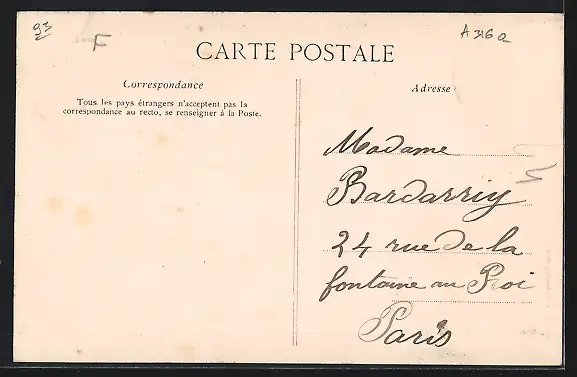 93
F
A 316 a
CARTE POSTALE
Correspondance
Tous les pays étrangers n'acceptent pas la
correspondance au recto, se renseigner à la Poste.
Adresse
Madame
Bardarriy
24 rue de la
fontaine au Roi
Paris